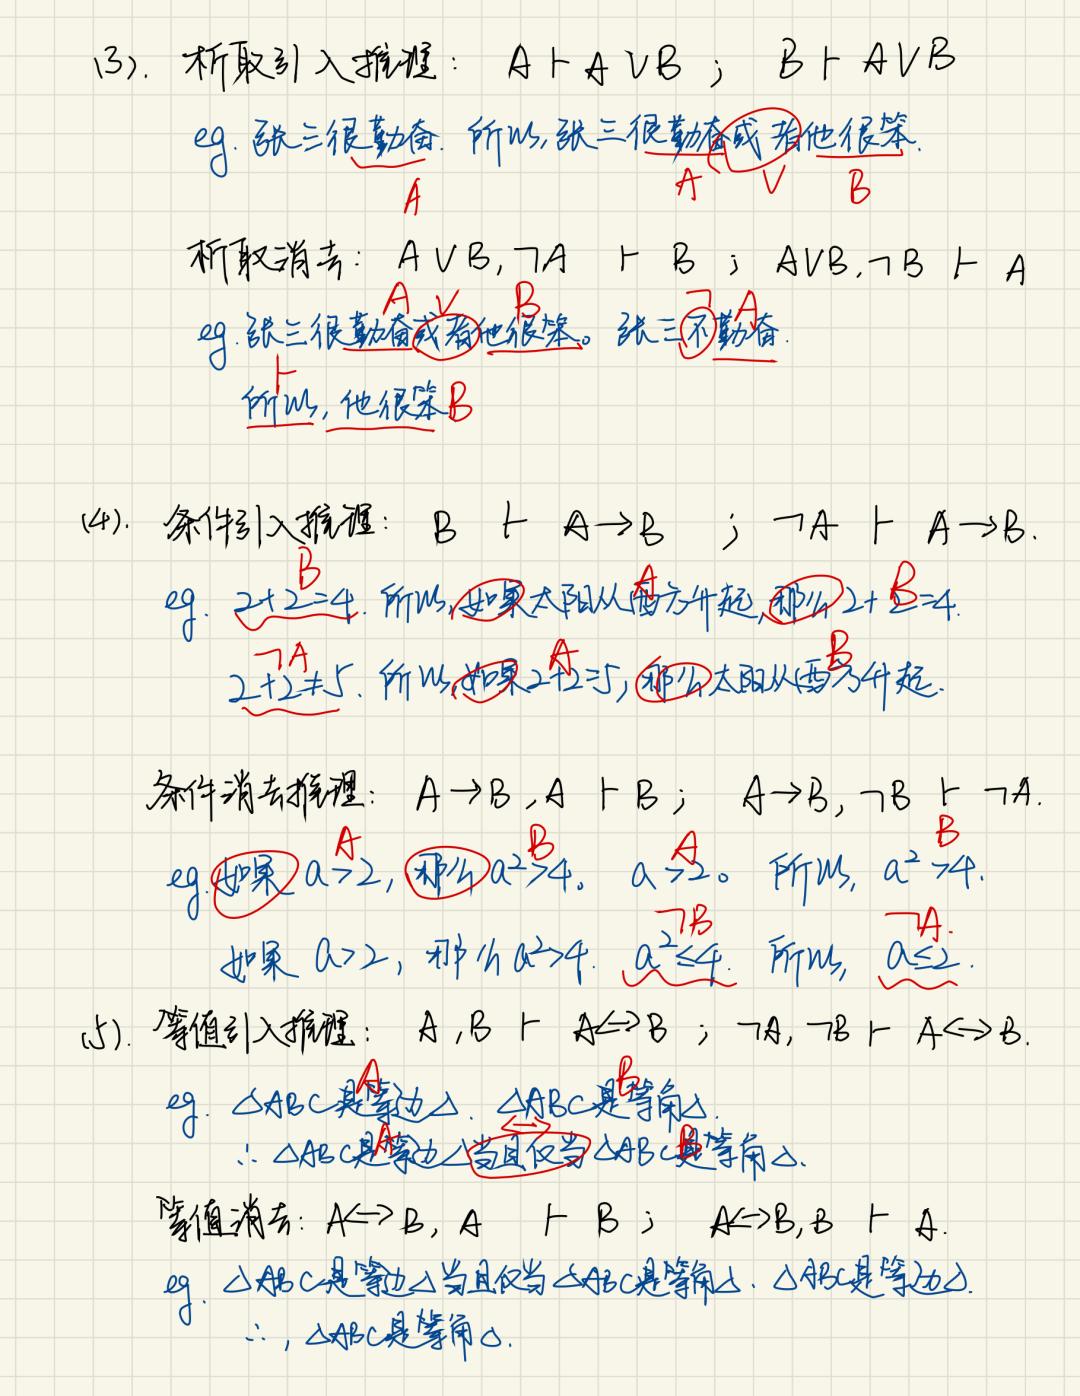 (3). 析取引入推理: A ⊢ A∨B ; B ⊢ A∨B
eg. 张三很勤奋. 所以, 张三很勤奋或者他很笨.
A A ∨ B
析取消去: A∨B, ¬A ⊢ B ; A∨B, ¬B ⊢ A
A ∨ B ¬ A
eg. 张三很勤奋或者他很笨。张三不勤奋.
⊢
所以, 他很笨 B
(4). 条件引入推理: B ⊢ A→B ; ¬A ⊢ A→B.
B A B
eg. 2+2=4. 所以, 如果太阳从西方升起, 那么 2+2=4.
¬A A B
2+2≠5. 所以, 如果 2+2=5, 那么太阳从西方升起.
条件消去推理: A→B, A ⊢ B ; A→B, ¬B ⊢ ¬A.
A B A B
eg. 如果 a>2, 那么 a²>4。 a>2。 所以, a²>4.
¬B ¬A.
如果 a>2, 那么 a²>4. a²≤4. 所以, a≤2.
(5). 等值引入推理: A, B ⊢ A<->B ; ¬A, ¬B ⊢ A<->B.
A B
eg. △ABC是等边△. △ABC是等角△.
A <-> B
∴ △ABC是等边△当且仅当△ABC是等角△.
等值消去: A<->B, A ⊢ B ; A<->B, B ⊢ A.
eg. △ABC是等边△当且仅当△ABC是等角△. △ABC是等边△.
∴, △ABC是等角△.